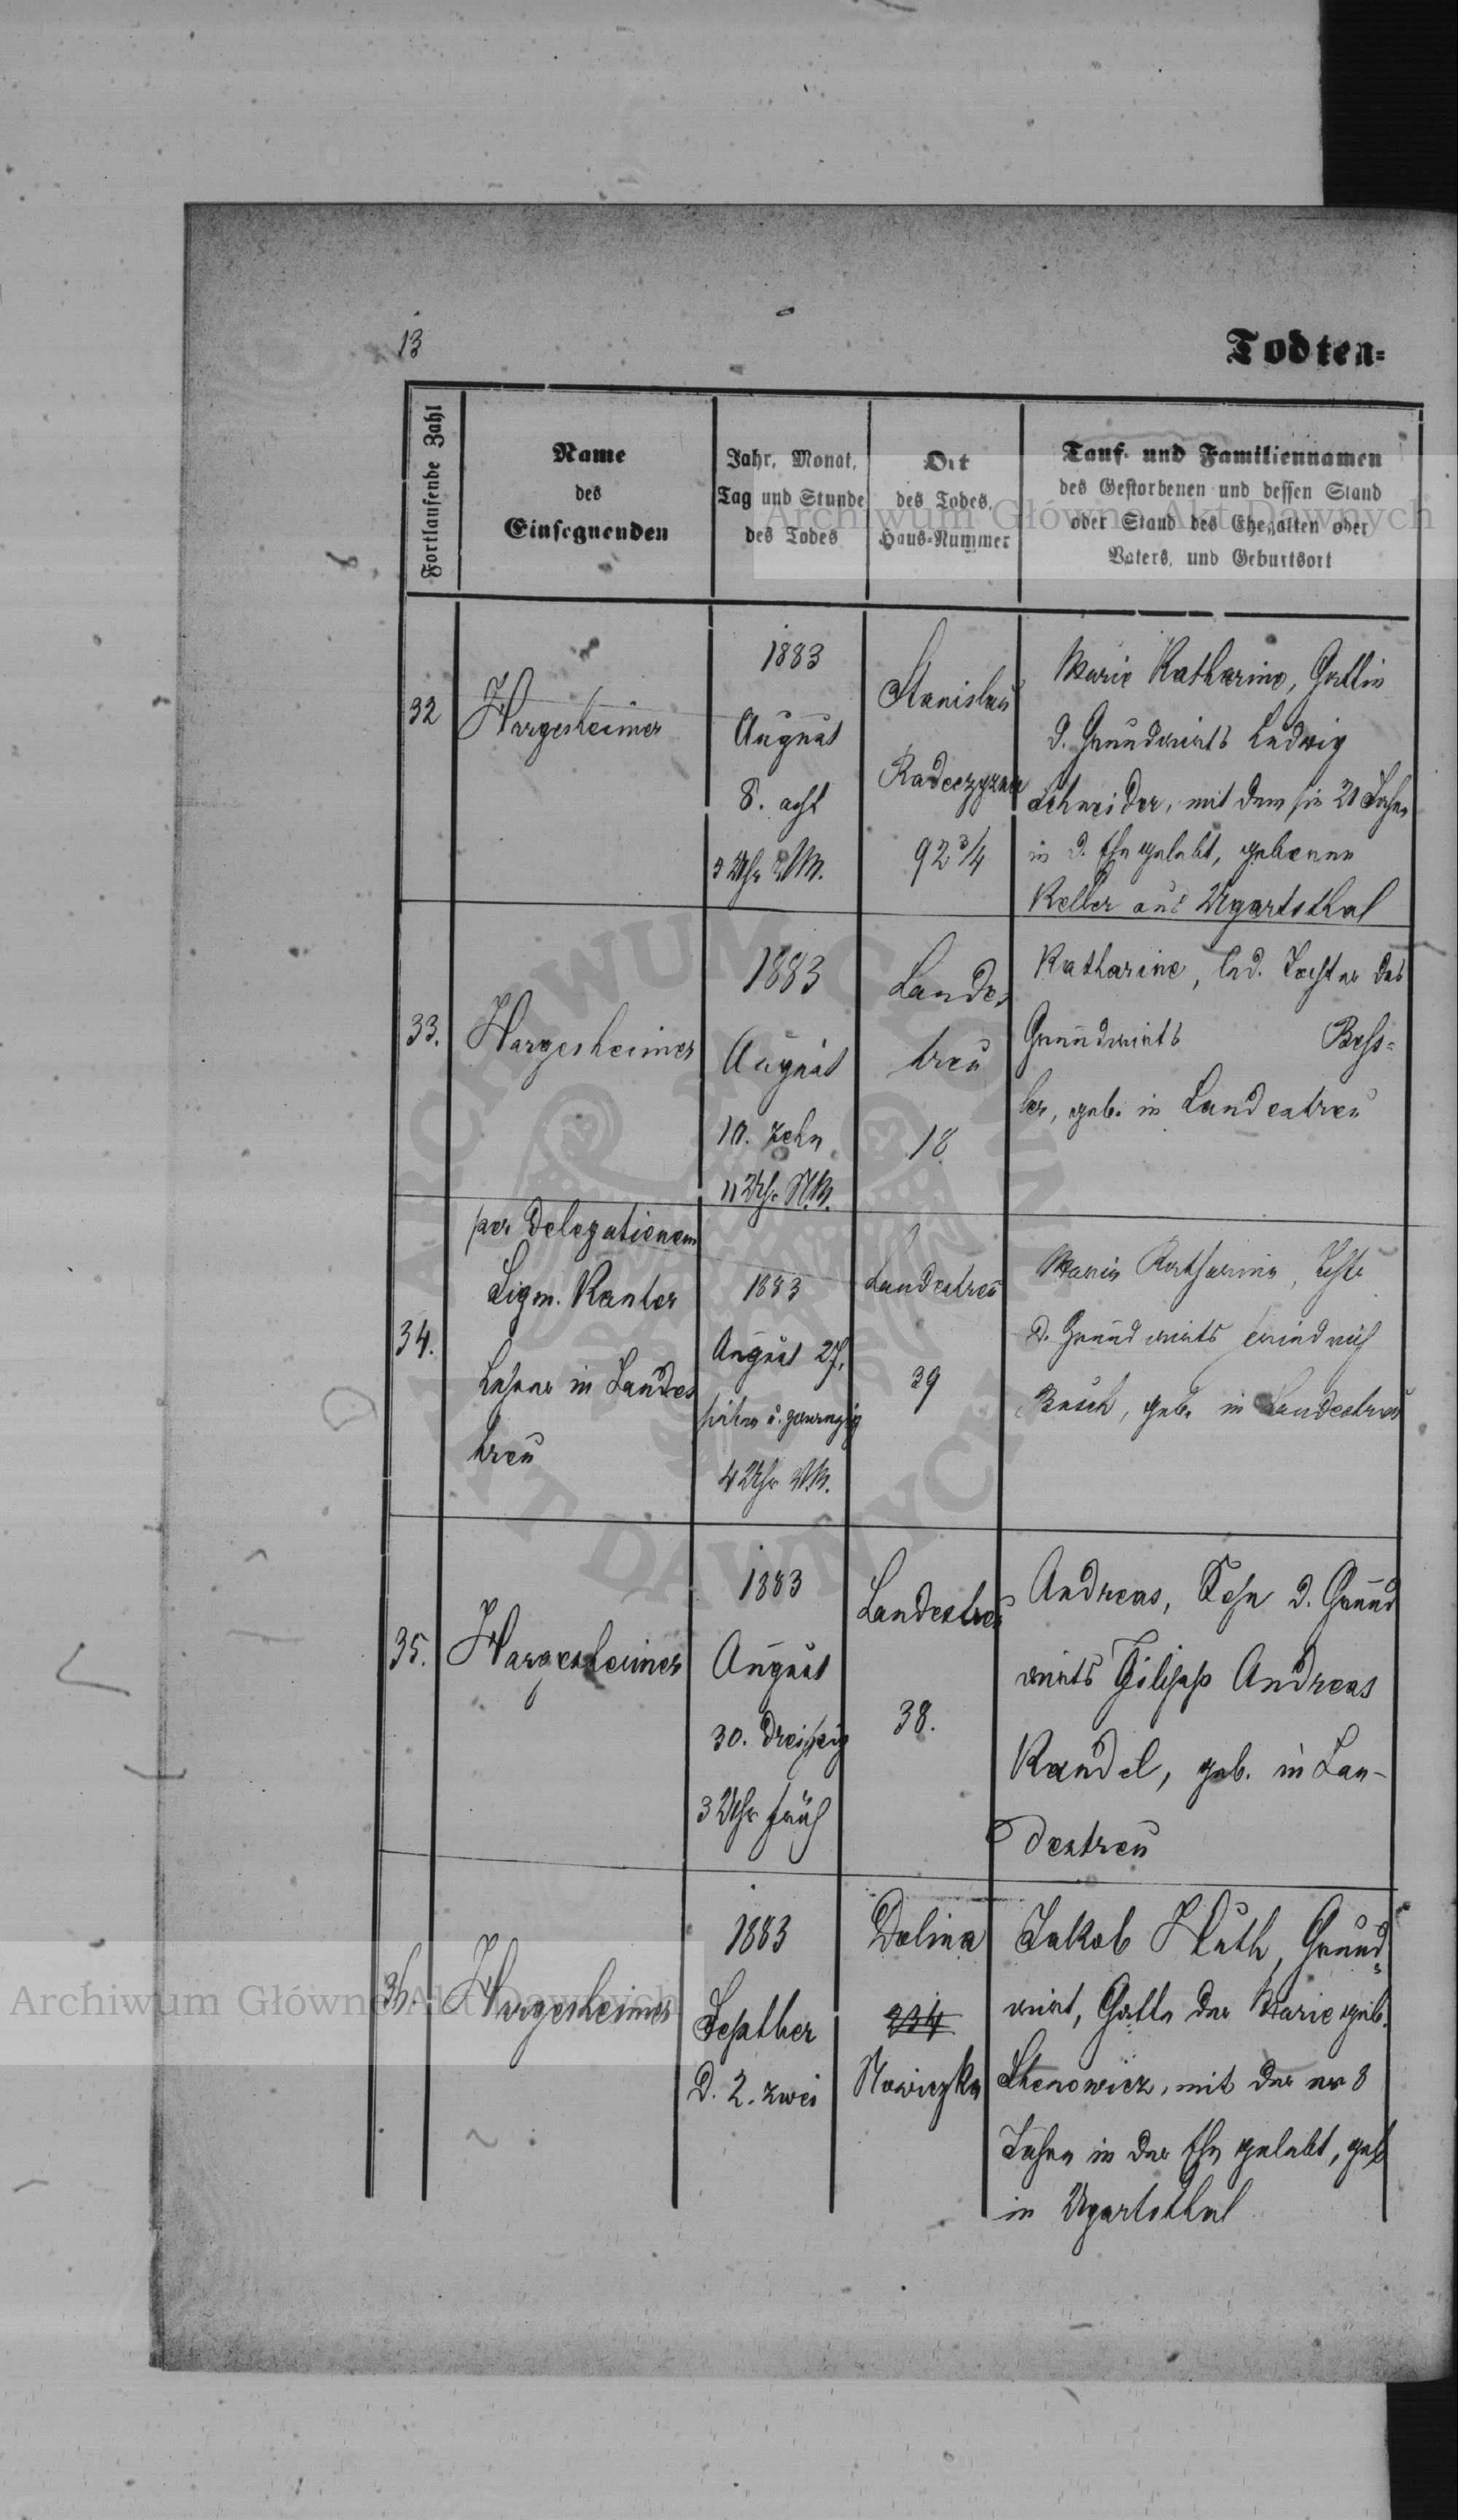 13
Todten=
Fortlaufende Zahl
Name
des
Einsegnenden
Jahr, Monat,
Tag und Stunde
des Todes
Ort
des Todes,
Haus-Nummer
Tauf- und Familiennamen
des Gestorbenen und dessen Stand
oder Stand des Ehegatten oder
Vaters, und Geburtsort
Archiwum Główne Akt Dawnych
32
Hargesheimer
1883
August
8. acht
3 Uhr NM.
Stanislau
92 3/4
Marie Katharine, Gattin
d. Grundwirts Ludwig
Schneider, mit dem sie 21 Jahre
in d. Ehe gelebt, geborene
Keller aus Ugartsthal
33.
Hargesheimer
1883
August
10. zehn
11 Uhr NM.
Landes
treu
18
Katharine, led. Tochter des
Grundwirts Bess=
ler, geb. in Landestreu
34.
per delegationem
Sigm. Kanter
Lehrer in Landes
treu
1883
August 27,
sieben u. zwanzig
4 Uhr NM.
Landestreu
39
Maria Katharina, Tochter
d. Grundwirts Heinrich
Busch, geb. in Landestreu
35.
Hargesheimer
1883
August
30. dreißig
3 Uhr früh
Landestreu
38.
Andreas, Sohn d. Grund
wirts Filipp Andreas
Kandel, geb. in Lan-
destreu
36.
Hargesheimer
1883
Septber
d. 2. zwei
Dolina
234
Nowiczka
Jakob Huth, Grund=
wirt, Gatte der Marie geb.
mit der er 8
Jahre in der Ehe gelebt, geb
in Ugartsthal
Archiwum Główne Akt Dawnych
ARCHIWUM GŁÓWNE AKT DAWNYCH